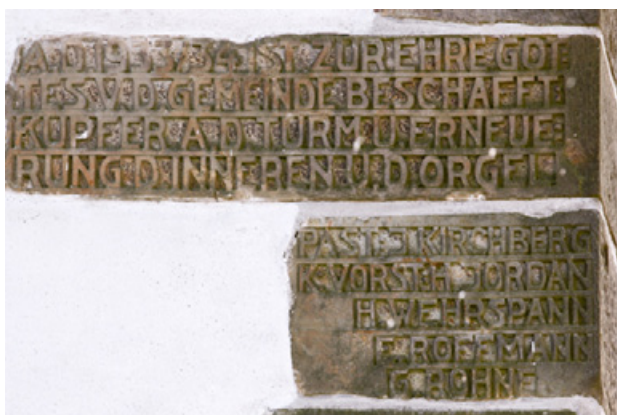 A.D.1933/34.IST.ZUR.EHRE.GOT
TES.V.D.GEMEINDE.BESCHAFFT:
KUPFER.A.D.TURM.U.ERNEUE=
RUNG.D.INNEREN.U.D.ORGEL.
PAST: KIRCHBERG
K.VORST:H.JORDAN
H.WEHRSPANN
E.ROFFMANN
G.HOHNE